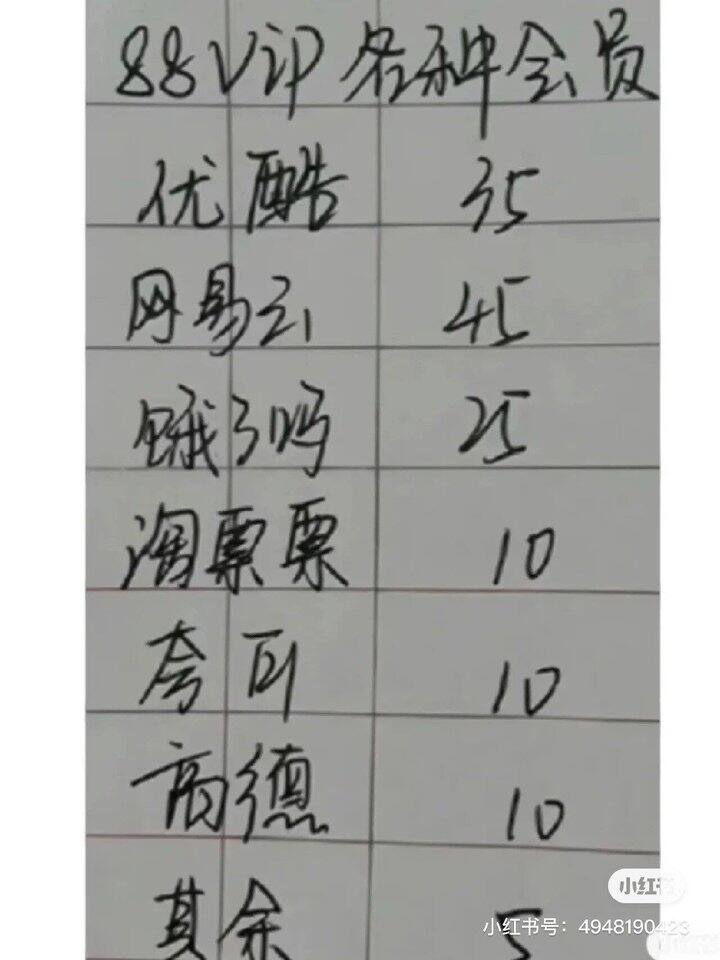 88VIP 各种会员
优酷 35
网易云 45
饿了吗 25
淘票票 10
夸克 10
高德 10
其余 5
小红书
小红书号：4948190423